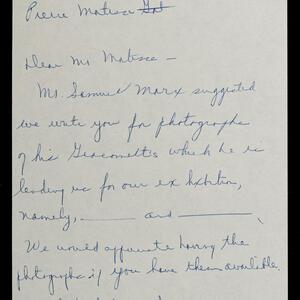 Pierre Matisse Gal
Dear Mr Matisse —
Mr. Samuel Marx suggested
we write you for photographs
of his Giacomettis which he is
lending us for our exhibition,
namely, ______ and ______
We would appreciate having the
photographs if you have them available.